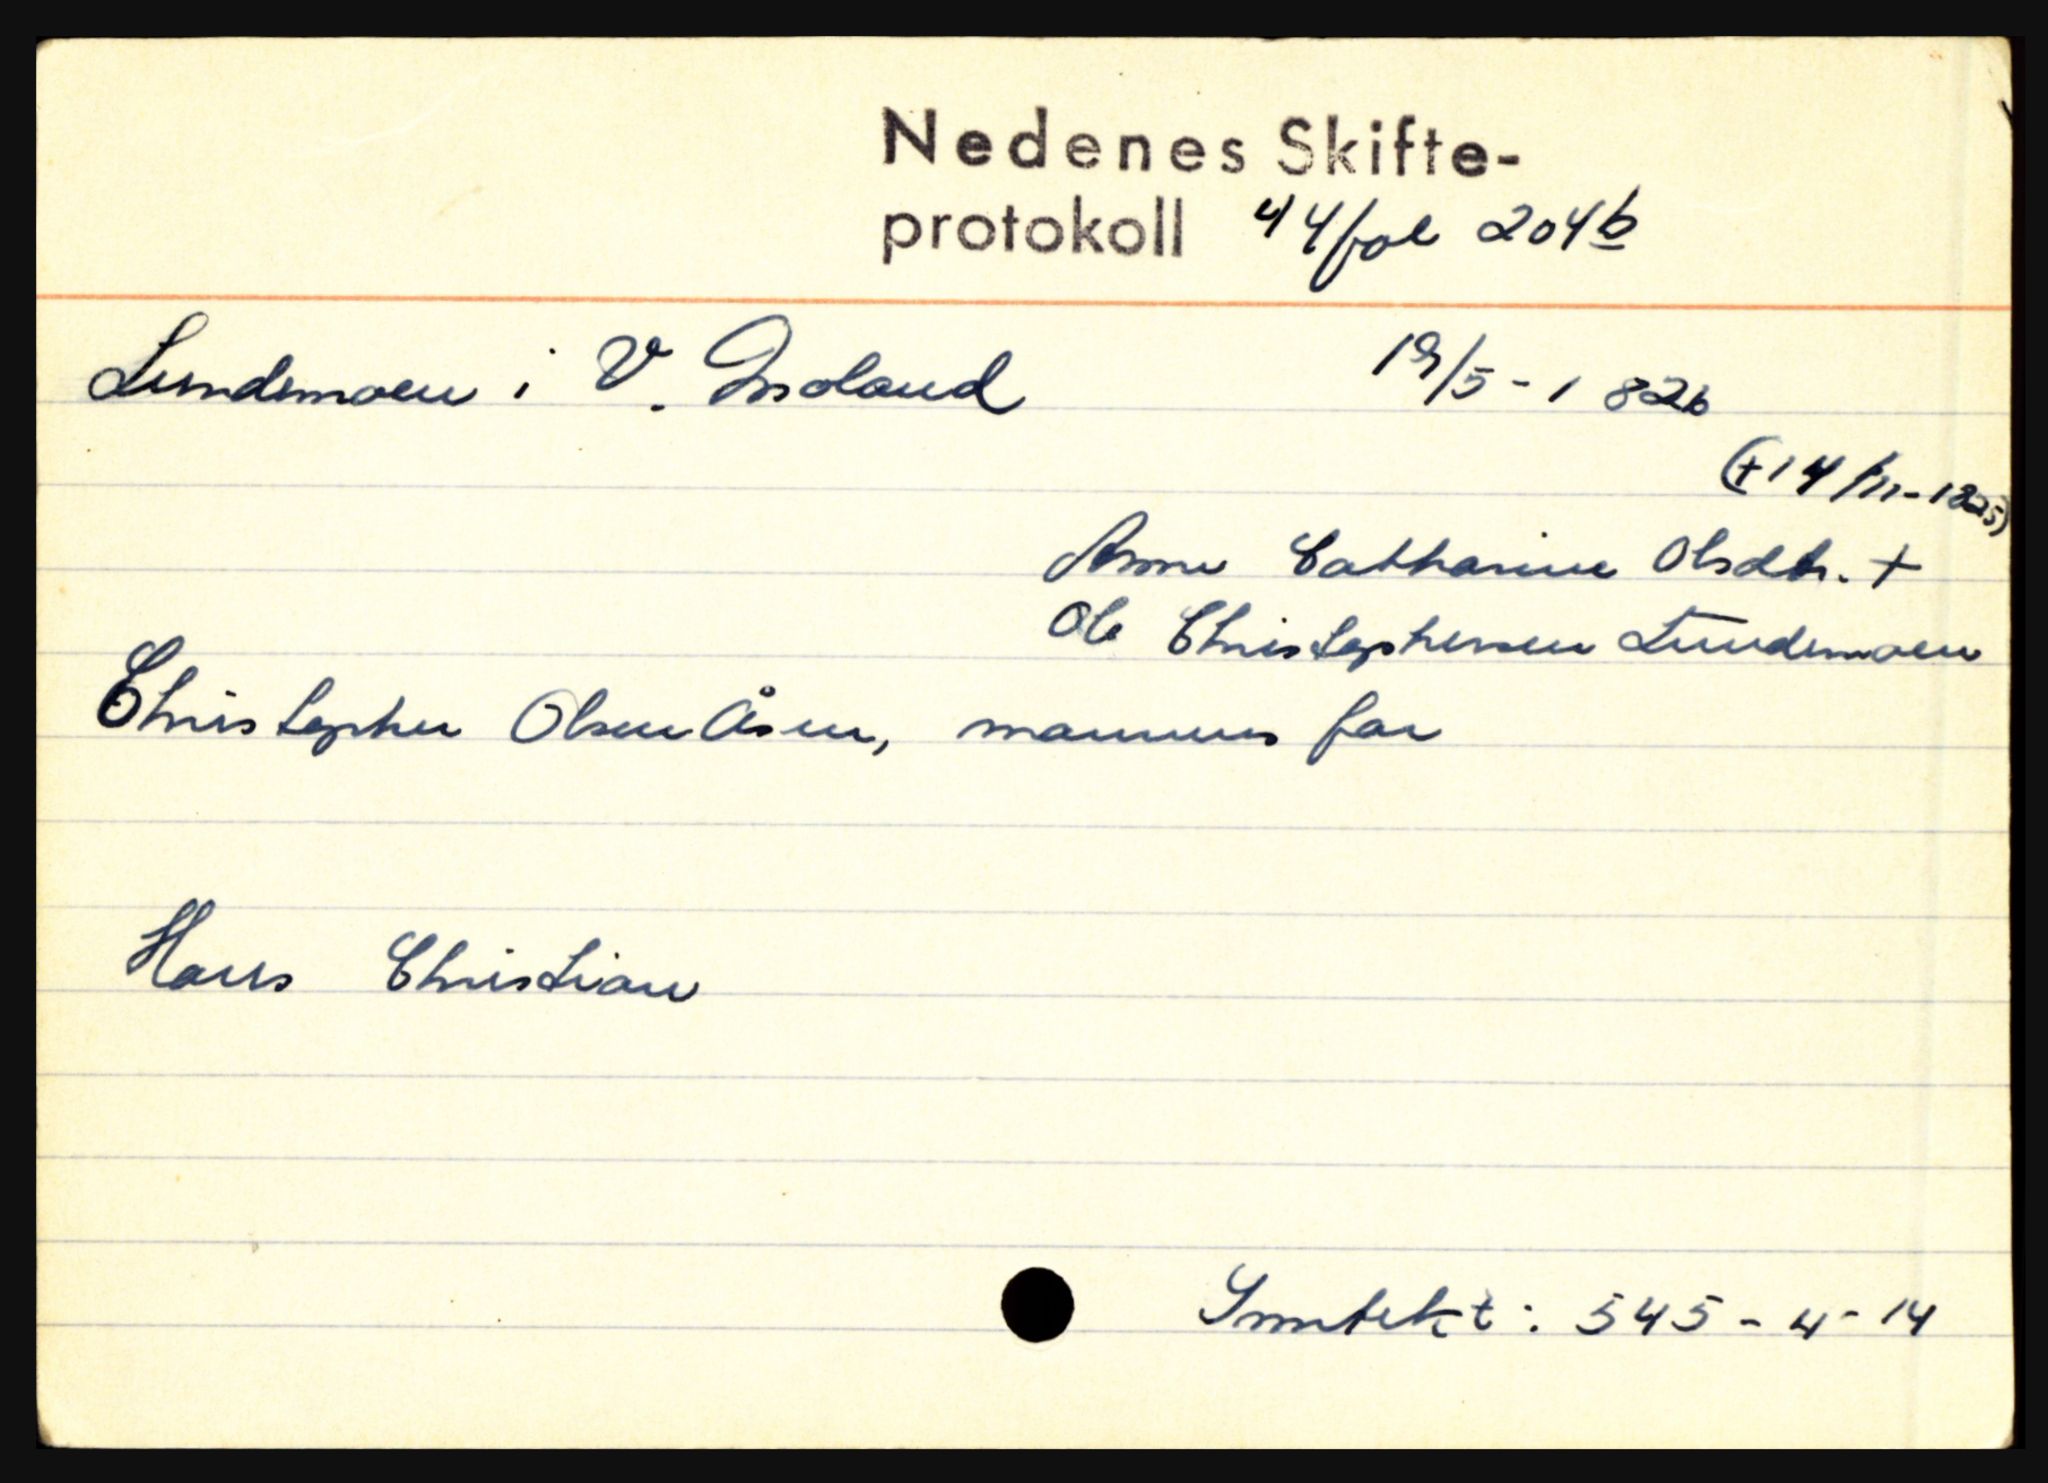 Nedenes Skifte-
protokoll 44 fol 204b
Lundemoen i V. Moland 19/5-1826
(+14/11-1825)
Anne Catharine Olsdtr. +
Ole Christophersen Lundemoen
Christopher Olsen Åsen, mannens far
Hans Christian
Inntekt: 545-4-14